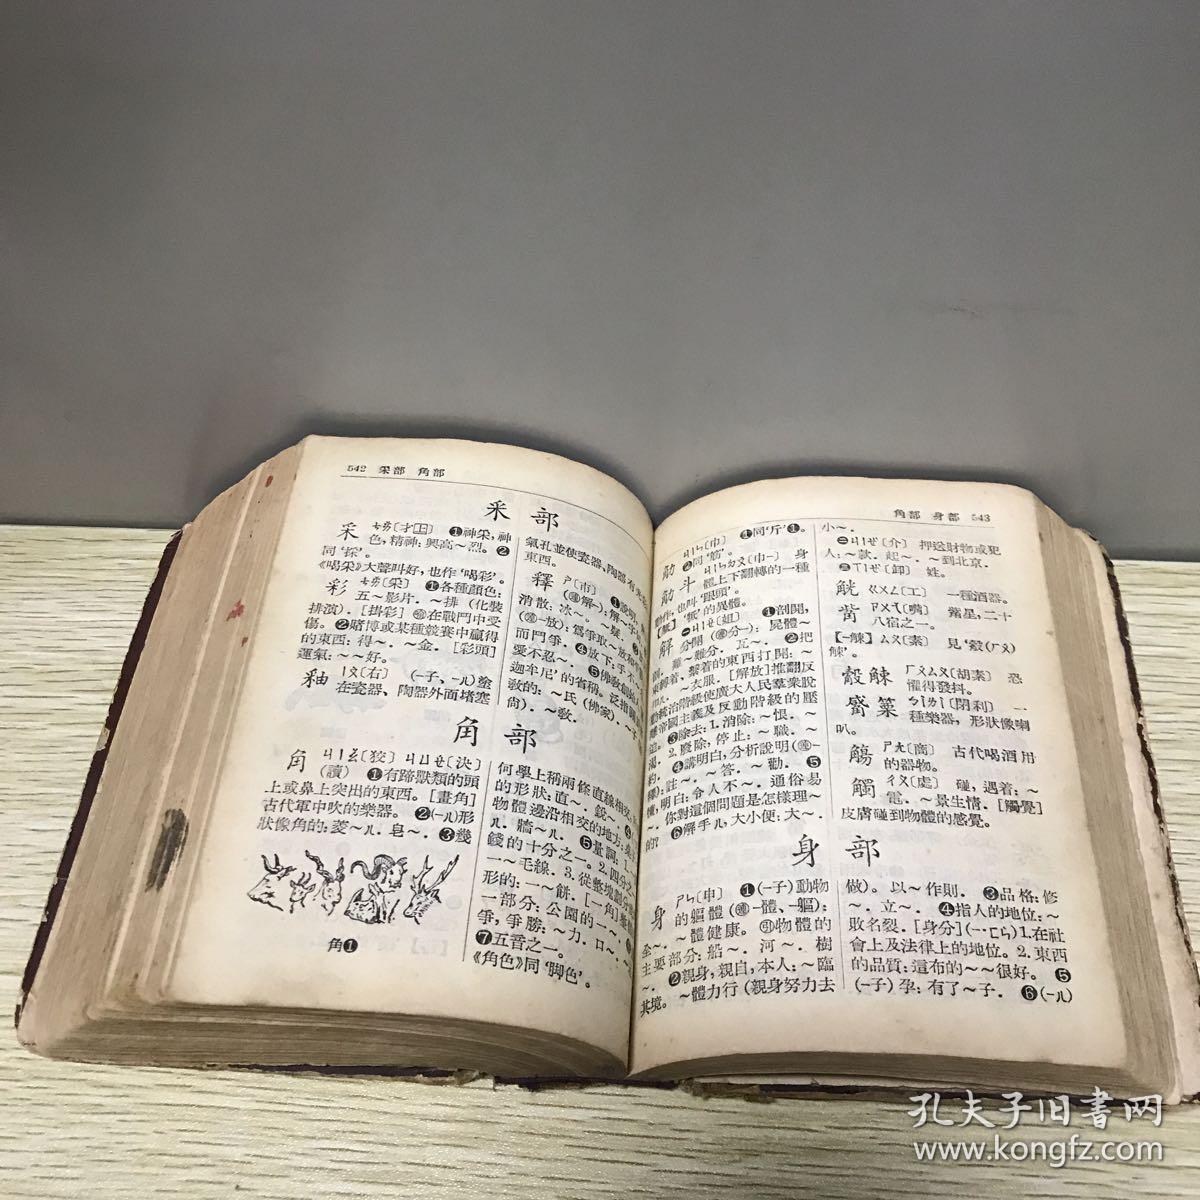 542 采部 角部
采部
采 ㄘㄞ〔才上〕 ❶神采,神
色,精神: 興高~烈。❷
同‘採’。
《喝采》大聲叫好,也作‘喝彩’。
彩 ㄘㄞ〔采〕 ❶各種顏色:
五~影片. ~排 (化裝
排演). [掛彩] 在戰鬥中受
傷。❷賭博或某種競賽中贏得
的東西: 得~. ~金. [彩頭]
運氣: ~~好。
釉 ㄧㄡ〔右〕 (一子、一ㄦ)塗
在瓷器、陶器外面堵塞
氣孔並使瓷器、陶器有
東西。
釋 ㄕ〔市〕 ❶說明
解~字
消散: 冰~.
(~放): 爲爭取~放
而鬥爭。❹放下: 手不
愛不忍~。❺佛教創始
迦牟尼’的省稱。泛指
教的: ~氏 (佛家). ~子
尚). ~敎.
角部
角 ㄐㄧㄠ〔狡〕 ㄐㄩㄝ〔決〕
(讀) ❶有蹄獸類的頭
上或鼻上突出的東西。[畫角]
古代軍中吹的樂器。❷(一ㄦ)形
狀像角的: 菱~ㄦ. 皂~. ❸幾
角❶
何學上稱兩條直線相交
的形狀: 直~. 銳~.
物體邊沿相交的地方:
ㄦ. 牆~ㄦ. ❺量詞: 1.
錢的十分之一。2. 四分之
一~毛線. 3. 從整塊
形的: 一~餅. [一角]
一部分: 公園的一~.
爭,爭勝: ~力. 口~.
❼五音之一。
《角色》同‘脚色’。
角部 身部 543
ㄐㄧㄣ〔巾〕 ❶同‘斤’❶。
❷同‘筋’。
斗 ㄐㄧㄣㄉㄡ〔巾一〕 身
體上下翻轉的一種
動作,也叫‘跟頭’。
的異體。
解 ㄐㄧㄝ〔姐〕 ❶剖開,
分開 (分一): 屍體~
剖. 難~難分. 瓦~. ❷把
束縛着、繫着的東西打開: ~
扣ㄦ. ~衣服. [解放]推翻反
動統治階級使廣大人民羣衆脫
離帝國主義及反動階級的壓
迫。❸除去: 1. 消除: ~恨. ~
渴. 2. 廢除,停止: ~職. ~
約. ❹講明白,分析說明 (一
釋): 註~. ~答. ~勸. ❺
懂,明白: 令人不~. 通俗易
~. 你對這個問題是怎樣理~
的? ❻解手ㄦ,大小便: 大~.
小~.
㊁ㄐㄧㄝ〔介〕 押送財物或犯
人: ~款. 起~. ~到北京.
㊂ㄒㄧㄝ〔卸〕 姓。
觥 ㄍㄨㄥ〔工〕 一種酒器。
觜 ㄗㄨㄟ〔嘴〕 觜星,二十
八宿之一。
[一觫] ㄙㄨ〔素〕 見‘觳(ㄏㄨ)
觫’。
觳觫 ㄏㄨㄙㄨ〔胡素〕 恐
懼得發抖。
觱篥 ㄅㄧㄌㄧ〔閉利〕 一
種樂器,形狀像喇
叭。
觴 ㄕㄤ〔商〕 古代喝酒用
的器物。
觸 ㄔㄨ〔處〕 碰,遇着: ~
電. ~景生情. [觸覺]
皮膚碰到物體的感覺。
身部
身 ㄕㄣ〔申〕 ❶(一子)動物
的軀體 (一體、一軀):
全~. ~體健康. 物體的
主要部分: 船~. 河~. 樹
~. ❷親身,親自,本人: ~臨
其境. ~體力行 (親身努力去
做). 以~作則. ❸品格: 修
~. 立~. ❹指人的地位: ~
敗名裂. [身分](一·ㄈㄣ)1. 在社
會上及法律上的地位。2. 東西
的品質: 這布的~~很好. ❺
(一子) 孕: 有了~子. ❻(一ㄦ)
孔夫子旧书网
www.kongfz.com